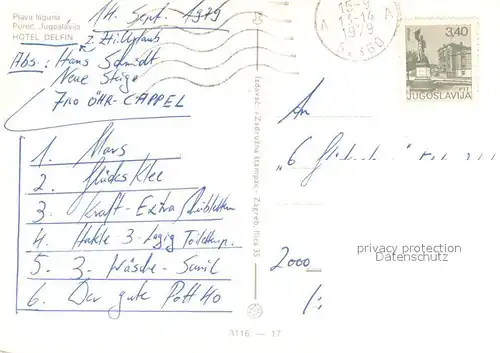 Plava laguna
Poreč, Jugoslavija
HOTEL DELFIN
14. Sept. 1979
z. Zt. Urlaub
Abs.: Hans Schmidt
Neue Steige
7110 ÖHR-CAPPEL
1. Mars
2. Glücks Klee
3. Kraft-Extra Scheibletten
4. Hakle 3-lagig Toilettenp.
5. 3-Wäsche-Sunil
6. Der gute Pott 40
Izdavač: »Zadružna štampa« - Zagreb, Ilica 35
3116 — 17
15-9
13-14
1979
A A
3,40
JUGOSLAVIJA
An
„6
2000
privacy protection
Datenschutz